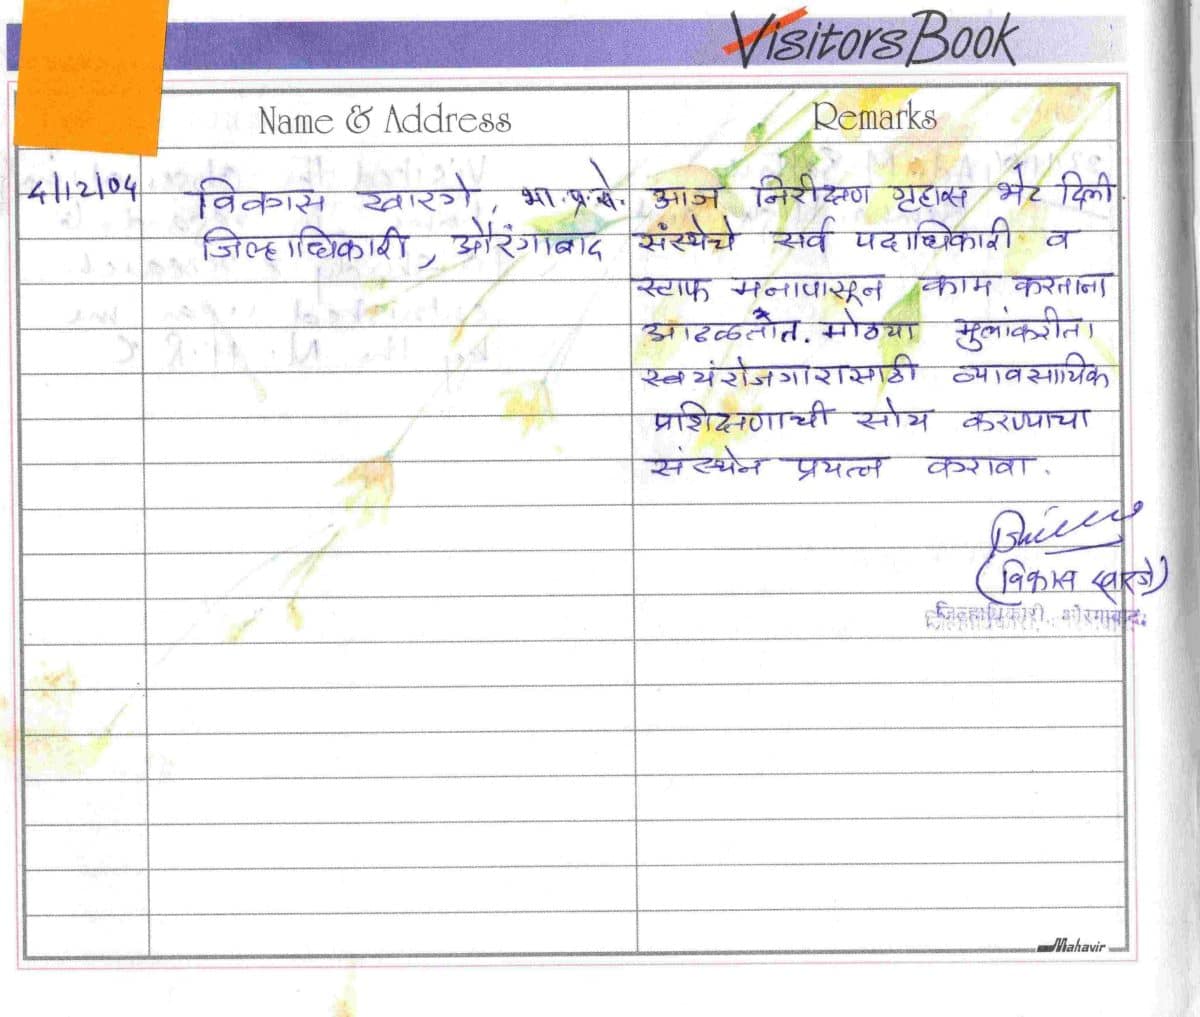 Visitors Book
Name & Address
Remarks
4/12/04
विकास खारगे, भा.प्र.से.
जिल्हाधिकारी, औरंगाबाद
आज निरीक्षण गृहास भेट दिली.
संस्थेचे सर्व पदाधिकारी व
स्टाफ मनापासून काम करताना
आढळतात. मोठया मुलांकरीता
स्वयंरोजगारासाठी व्यावसायिक
प्रशिक्षणाची सोय करण्याचा
संस्थेन प्रयत्न करावा.
(विकास खारगे)
जिल्हाधिकारी, औरंगाबाद.
Mahavir